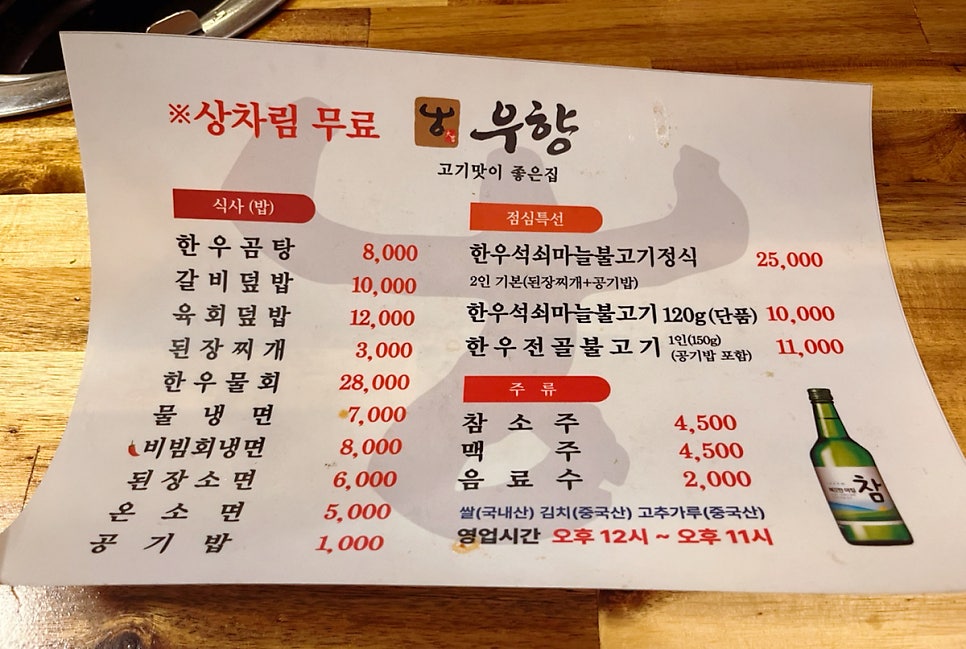 ※상차림 무료
우향
고기맛이 좋은집
식사 (밥)
한우곰탕 8,000
갈비덮밥 10,000
육회덮밥 12,000
된장찌개 3,000
한우물회 28,000
물냉면 7,000
비빔회냉면 8,000
된장소면 6,000
온소면 5,000
공기밥 1,000
점심특선
한우석쇠마늘불고기정식 25,000
2인 기본(된장찌개+공기밥)
한우석쇠마늘불고기 120g(단품) 10,000
한우전골불고기 1인(150g) (공기밥 포함) 11,000
주류
참소주 4,500
맥주 4,500
음료수 2,000
쌀(국내산) 김치(중국산) 고추가루(중국산)
영업시간 오후 12시 ~ 오후 11시
참